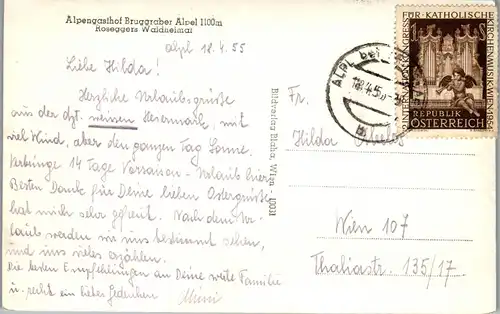 Alpengasthof Bruggraber Alpel 1100m
Roseggers Waldheimat
Alpl 18.4.55
Liebe Hilda!
Herzliche Urlaubsgrüße
aus der dzt. weissen Steiermark, mit
viel Wind, aber den ganzen Tag Sonne.
Verbringe 14 Tage Urlaub hier.
Besten Dank für Deine lieben Ostergrüße
hat mich sehr gefreut. Nach dem Ur-
laub werden wir uns bestimmt sehen,
und uns vieles erzählen.
Die besten Empfehlungen an Deine werte Familie
u. recht ein liebes Gedenken Mimi
Bildverlag Blaha, Wien
ALPL bei
18.4.55
KATHOLISCHE
KIRCHENMUSIK WIEN 1954
REPUBLIK
ÖSTERREICH
Fr.
Hilda
Wien 107
Thaliastr. 135/17.